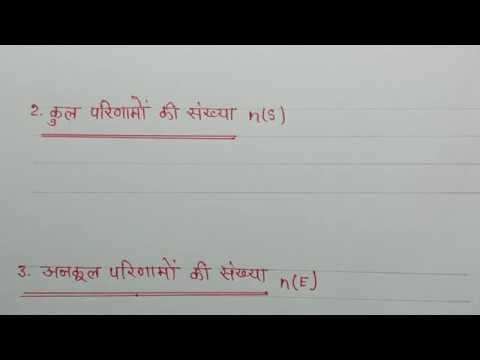 2. कुल परिणामों की संख्या n(S)
3. अनकूल परिणामों की संख्या n(E)